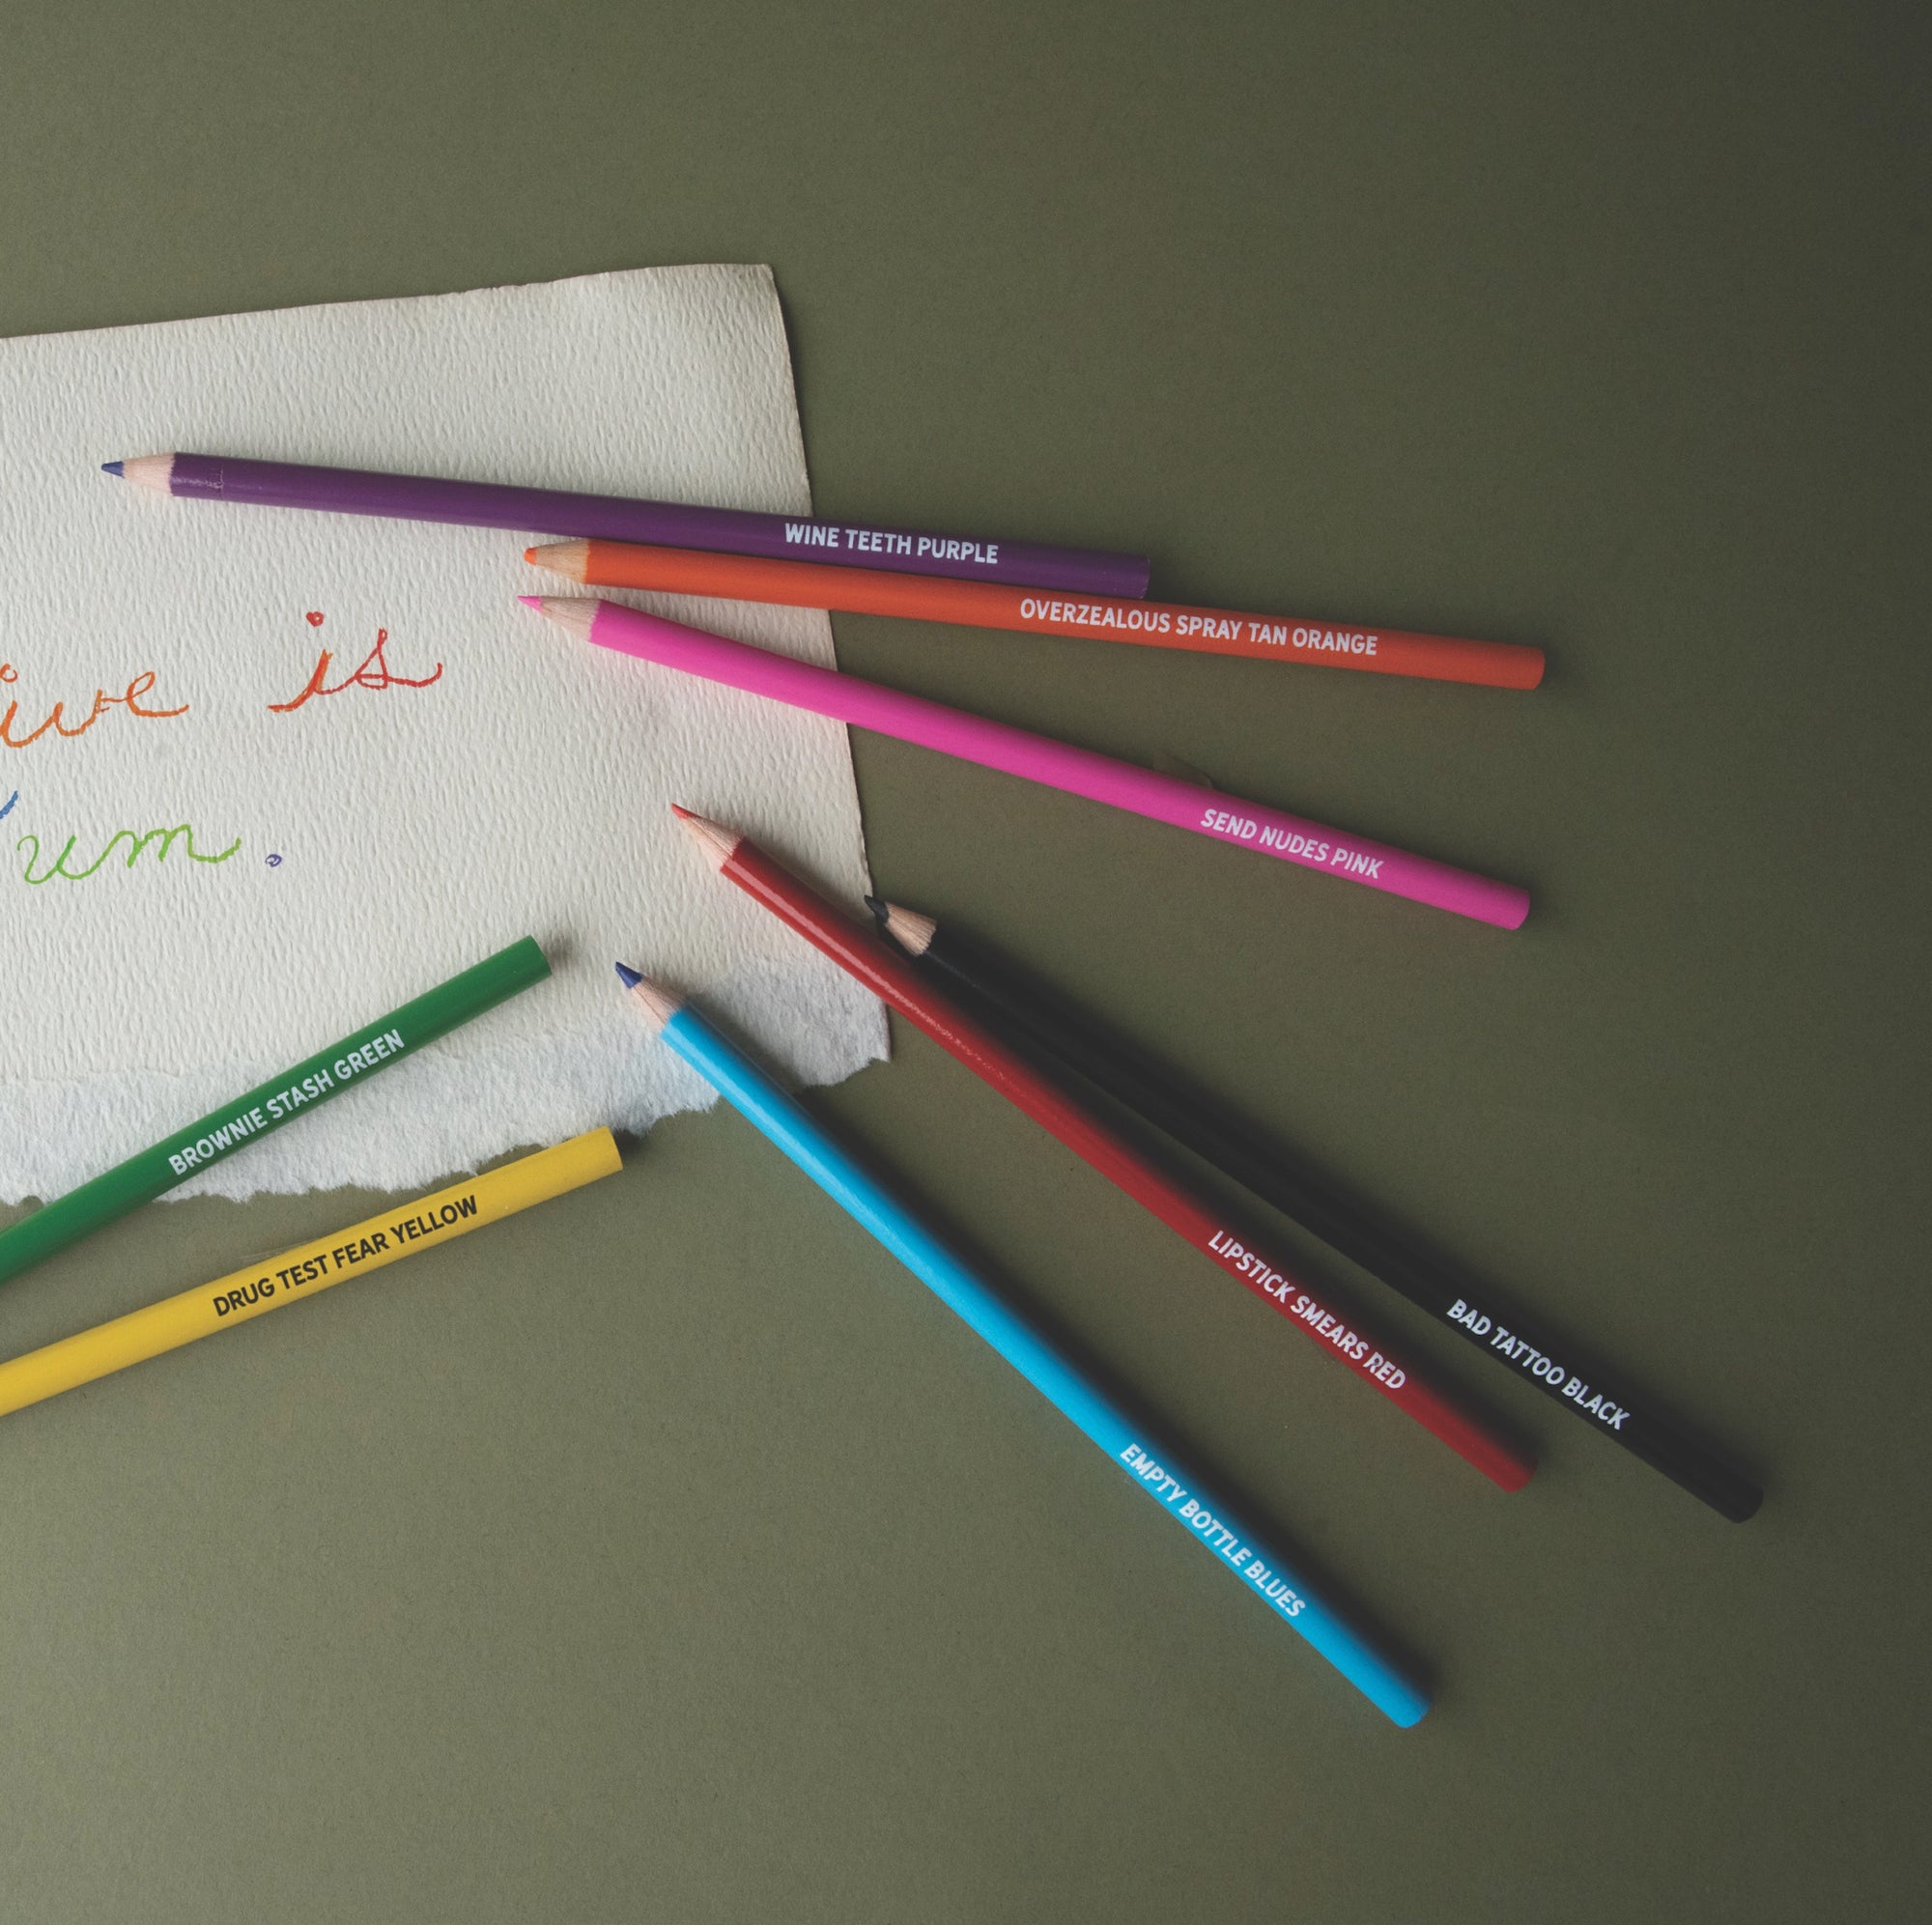 WINE TEETH PURPLE
OVERZEALOUS SPRAY TAN ORANGE
is
SEND NUDES PINK
BROWNIE STASH GREEN
DRUG TEST FEAR YELLOW
LIPSTICK SMEARS RED
BAD TATTOO BLACK
EMPTY BOTTLE BLUES